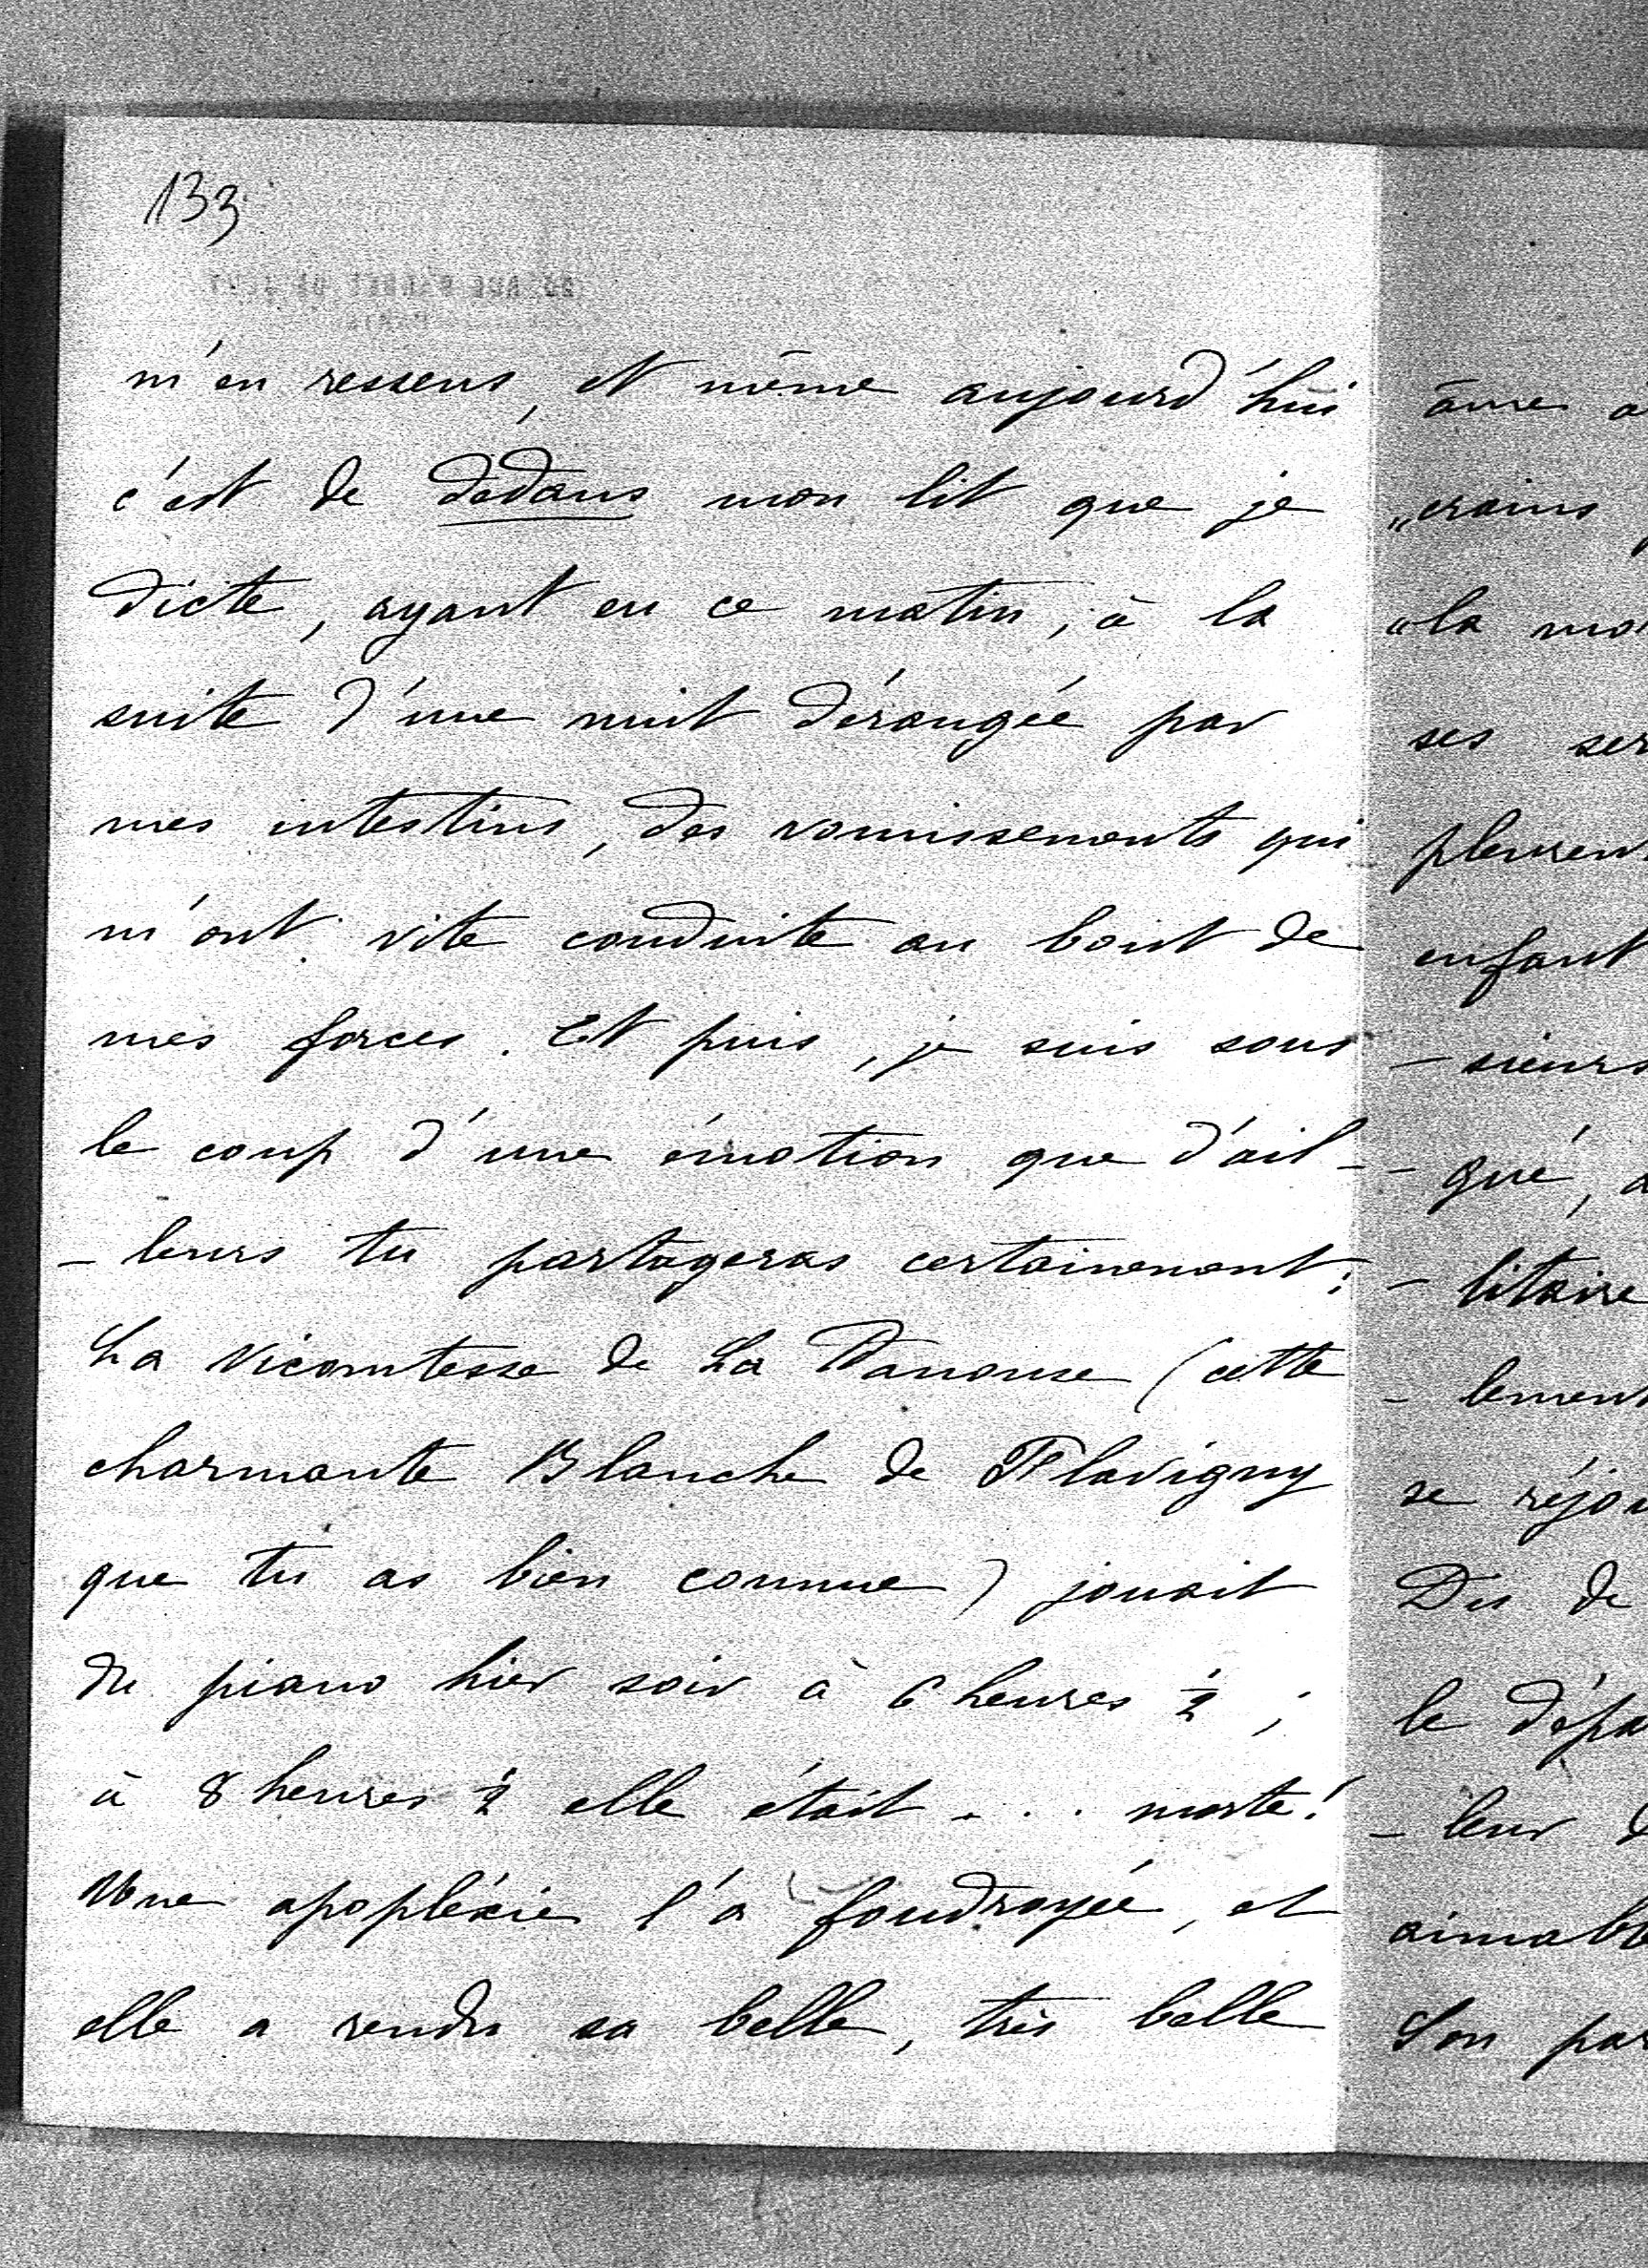 133
m'en ressens, et même aujourd'hui
c'est de dedans mon lit que je
dicte, ayant eu ce matin, à la
suite d'une nuit dérangée par
mes intestins, des vomissements qui
m'ont vite conduite au bout de
mes forces. Et puis, je suis sous
le coup d'une émotion que d'ail-
-leurs tu partageras certainement:
La Vicomtesse de La Panouse (cette
charmante Blanche de Flavigny
que tu as bien connue) jouait
du piano hier soir à 6 heures ½;
à 8 heures ½ elle était ... morte!
Une apopléxie l'a foudroyée, et
elle a rendu sa belle, très belle
âme
„crains
„la
ses
pleuren
enfant
-sieurs
-qué,
-litaire
-lement
se réjou
Dis de
le dépa
-leur
aimable
Son par